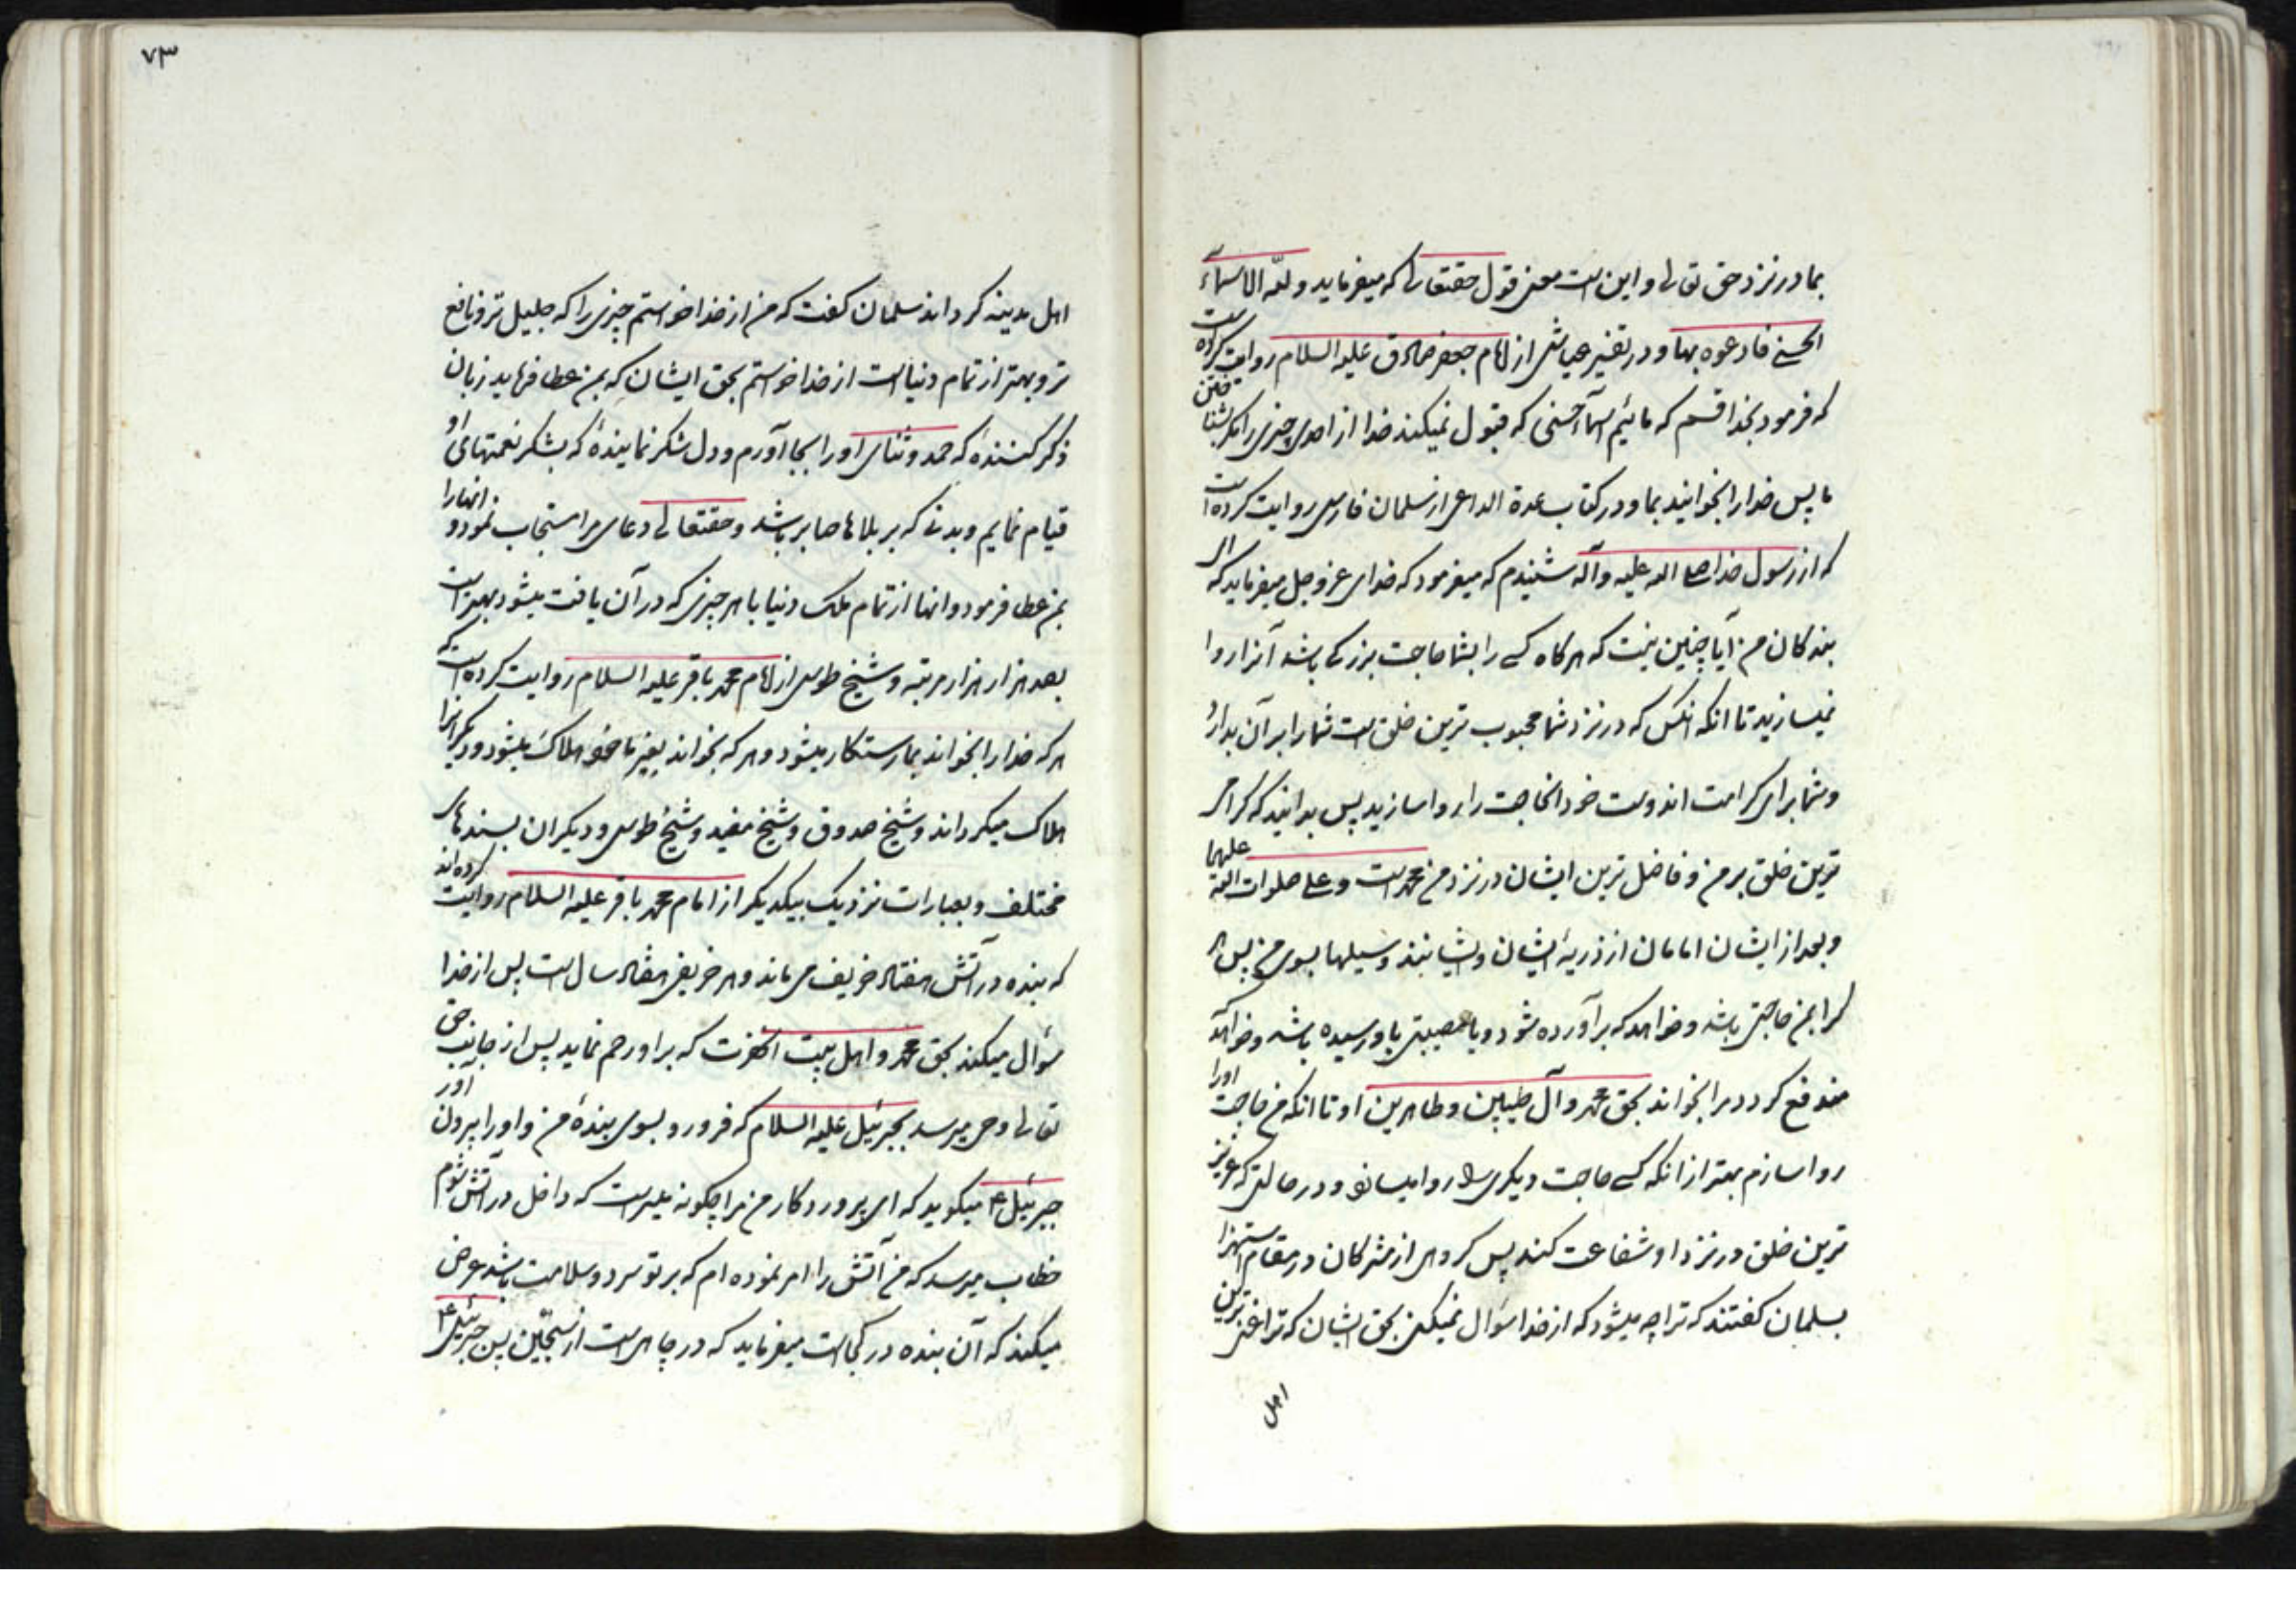 بما در نزد حق تعالی و این است معنی قول حقتعالی که میفرماید و لله الاسمآء
الحسنی فادعوه بها و در تفسیر عیاشی از امام جعفر صادق علیه السلام روایت کرده است
که فرمود بخدا قسم که مائیم اسمآء حسنی که قبول نمیکند خدا از احدی چیزی را مگر بشناختن
ما پس خدا را بخوانید بما و در کتاب عدة الداعی از سلمان فارسی روایت کرده است
که از رسول خدا صلی الله علیه و آله شنیدم که میفرمود که خدای عز و جل میفرماید که ای
بندکان من آیا چنین نیست که هرکاه کسی را بشما حاجت بزرکی باشد آنرا روا
نمیسازید تا انکه انکس که در نزد شما محبوب ترین خلق است شما را بر آن بدارد
و شما برای کرامت اندوست خود انحاجت را روا سازید پس بدانید که کرامی
ترین خلق بر من و فاضل ترین ایشان در نزد من محمد است و علی صلوات الله علیهما
و بعد از ایشان امامان از ذریهٔ ایشان و ایشانند وسیلها بسوی من پس هر
کرا بمن حاجتی باشد و خواهد که برآورده شود و یا مصیبتی باو رسیده باشد و خواهد
مندفع کردد مرا بخواند بحق محمد و آل طیبین و طاهرین او تا انکه من حاجت اورا
روا سازم بهتر از انکه کسی حاجت دیکری را روا میسازد و در حالتی که عزیز
ترین خلق در نزد او شفاعت کند پس کروهی از مشرکان در مقام استهزا
بسلمان کفتند که ترا چه میشود که از خدا سؤال نمیکنی بحق ایشان که ترا غنی ترین
اهل
۷۳
اهل مدینه کرداند سلمان کفت که من از خدا خواستم چیزی را که جلیل تر و نافع
تر و بهتر از تمام دنیا است از خدا خواستم بحق ایشان که بمن عطا فرماید زبان
ذکر کننده که حمد و ثنای او را بجا آورم و دل شکر نمایندهٔ که بشکر نعمتهای او
قیام نمایم و بدنی که بر بلاها صابر باشد و حقتعالی دعای مرا مستجاب نمود و انها را
بمن عطا فرمود و انها از تمام ملک دنیا با هر چیزی که در آن یافت میشود بهتر است
بصد هزار هزار مرتبه و شیخ طوسی از امام محمد باقر علیه السلام روایت کرده است که
هر که خدا را بخواند بما رستکار میشود و هر که بخواند بغیر ما خود هلاک میشود و دیکرانرا
هلاک میکرداند و شیخ صدوق و شیخ مفید و شیخ طوسی و دیکران بسندهای
مختلف و بعبارات نزدیک بیکدیکر از امام محمد باقر علیه السلام روایت کرده اند
که بنده در آتش هفتاد خریف می ماند و هر خریفی هفتاد سال است پس از خدا
سؤال میکند بحق محمد و اهل بیت انحضرت که بر او رحم نماید پس از جانب حق
تعالی وحی میرسد بجبرئیل علیه السلام که فرو رو بسوی بندهٔ من و او را بیرون آور
جبرئیل ع میکوید که ای پروردکار من مرا چکونه میسر است که داخل در آتش شوم
خطاب میرسد که من آتش را امر نموده ام که بر تو سرد و سلامت باشد عرض
میکند که آن بنده در کجاست میفرماید که در چاهی است از سجّین پس جبرئیل ع